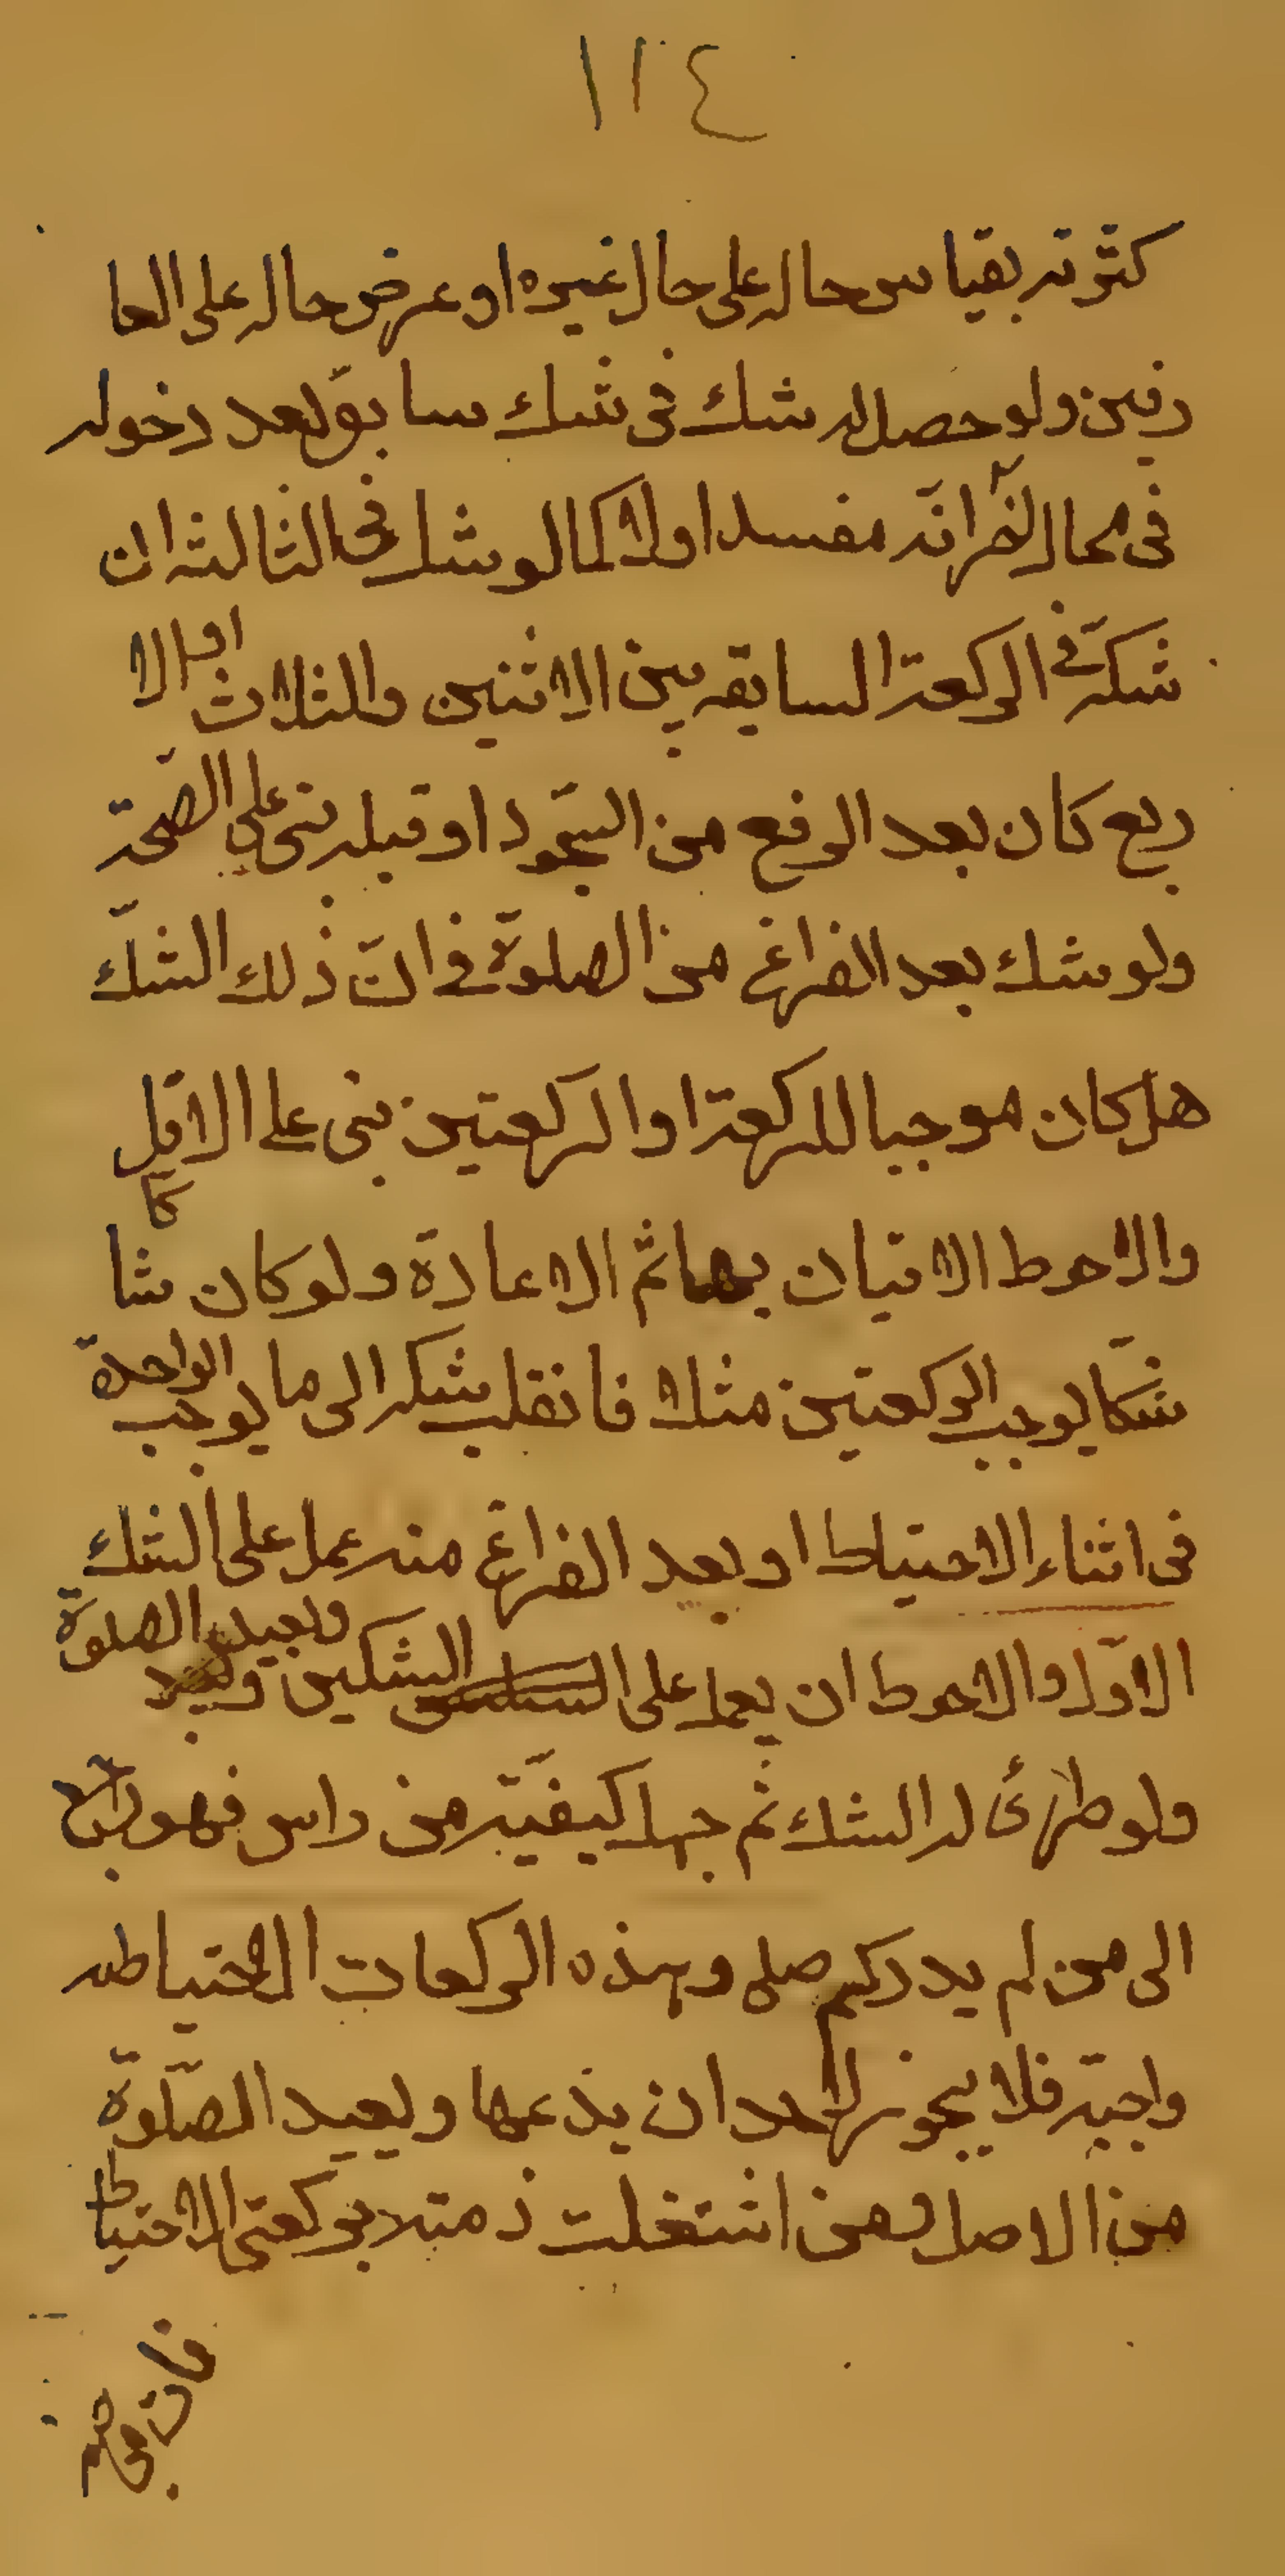 ١١٤
كثرته بقياس حاله على حال غيره او عرض حاله على العا
رفين ولو حصل له شك في شك سابق بعد دخوله
في محال اخر انه مفسد اولا كما لو شك في الثالثه ان
شكه في الركعة السابقه بين الاثنين والثلاث او الا
ربع كان بعد الرفع من السجود او قبله بنى على الصّحة
ولو شك بعد الفراغ من الصلوة في انّ ذلك الشكّ
هل كان موجبا للركعة او الركعتين بنى على الاقل
والاحوط الاتيان بها ثم الاعادة ولو كان شا كّا
شكّا يوجب الركعتين مثلا فانقلب شكه الى ما يوجب الواحدة
في اثناء الاحتياط او بعد الفراغ منه عمل على الشك
الاوّل والاحوط ان يعمل على الشكين ويعيد الصلوة
ولو طرئ له الشك ثم جهل كيفيّته من راس فهو
الى من لم يدر كم صلى وهذه الركعات الاحتياطيه
واجبة فلا يجوز لاحد ان يدعها ويعيد الصّلوة
من الاصل ومن اشتغلت ذمته بركعتى الاحتياط